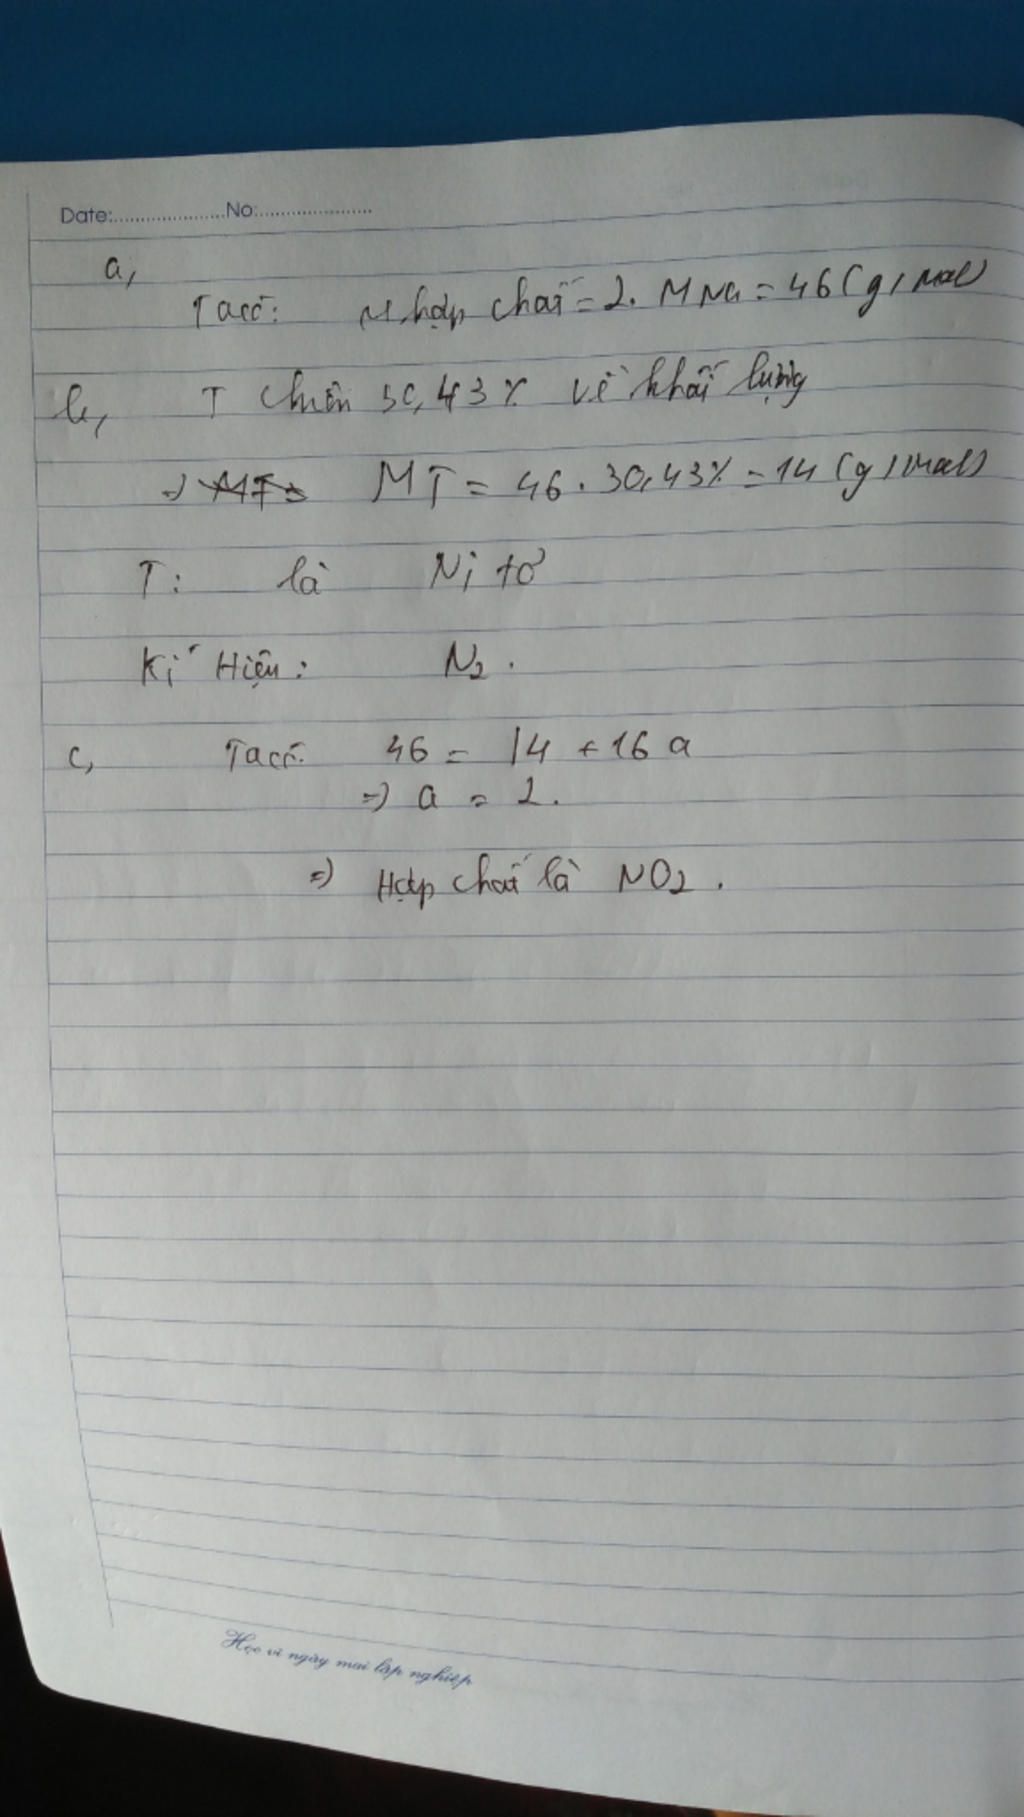 Date:.....................No:.....................
a,
Ta có: M hợp chất = 2. MNa = 46 (g/mol)
b, T chiếm 30,43% về khối lượng
=> MT = 46 . 30,43% = 14 (g/mol)
T: là Ni tơ
Kí Hiệu: N2.
c, Ta có: 46 = 14 + 16 a
=> a = 2.
=> Hợp chất là NO2.
Học vì ngày mai lập nghiệp